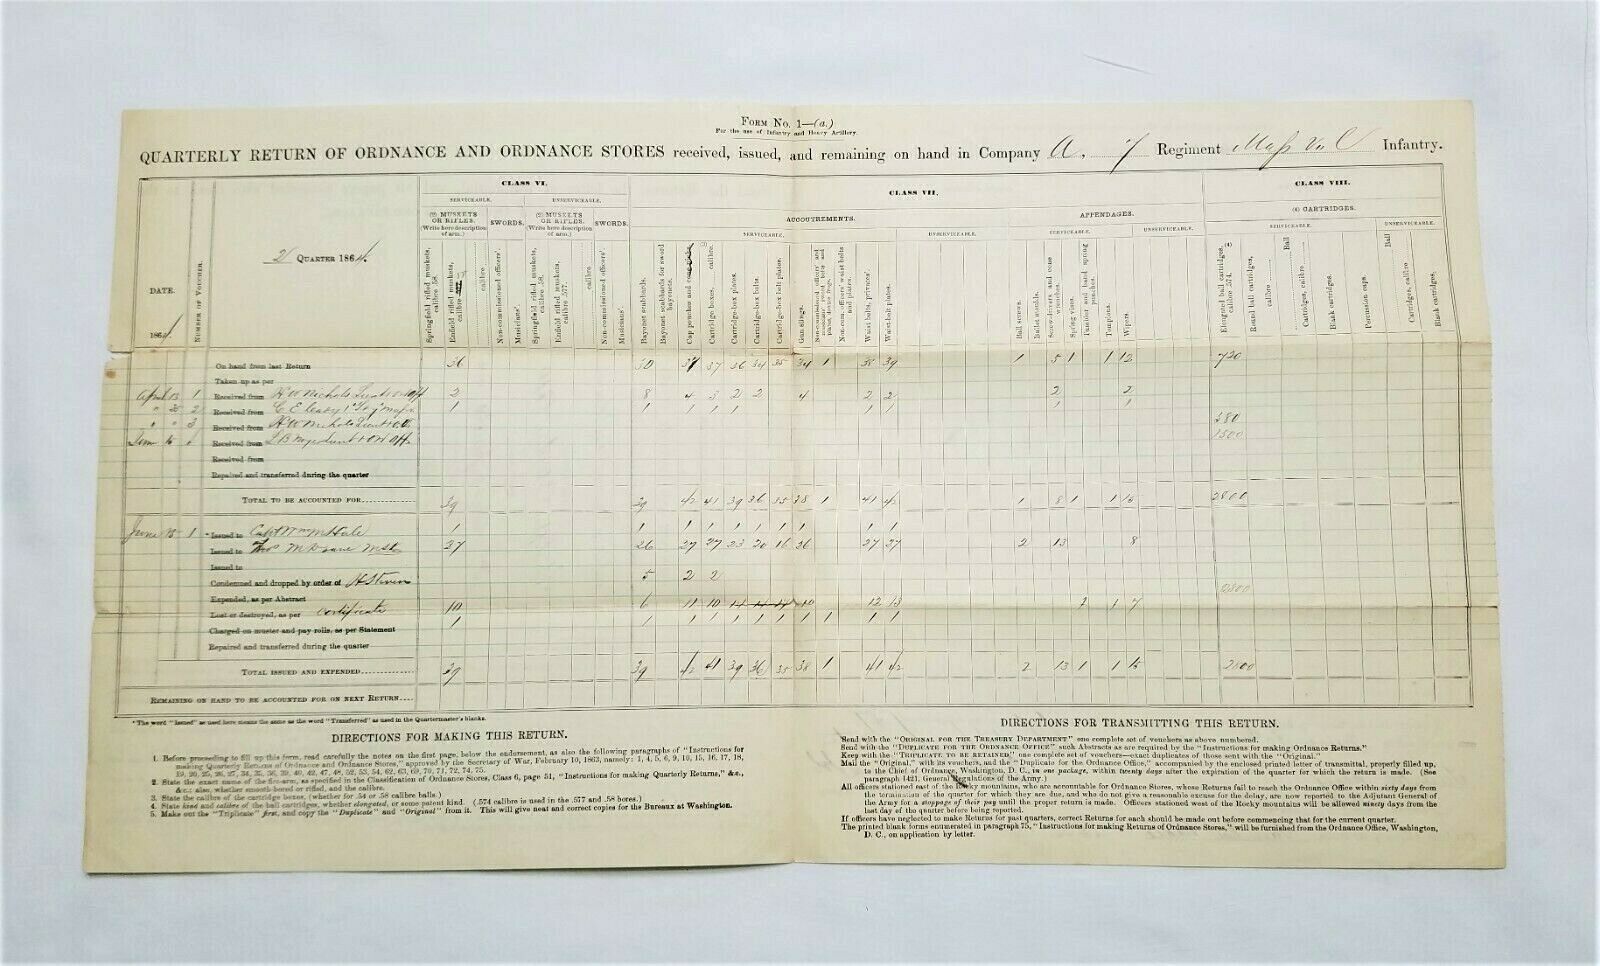 FORM NO. 1—(a.)
For the use of Infantry and Heavy Artillery.
QUARTERLY RETURN OF ORDNANCE AND ORDNANCE STORES received, issued, and remaining on hand in Company A. 7 Regiment Mass Vol Infantry.
CLASS VI. CLASS VII. CLASS VIII.
SERVICEABLE. UNSERVICEABLE. ACCOUTREMENTS. APPENDAGES. (4) CARTRIDGES.
SERVICEABLE. UNSERVICEABLE. SERVICEABLE. UNSERVICEABLE. SERVICEABLE. UNSERVICEABLE.
(2) MUSKETS OR RIFLES. SWORDS. (2) MUSKETS OR RIFLES. SWORDS.
(Write here description of arm.) (Write here description of arm.)
2 QUARTER 1864.
DATE.
1864.
NUMBER OF VOUCHER.
Springfield rifled muskets, calibre .58.
Enfield rifled muskets, calibre .577. 58
calibre
Non-commissioned officers'.
Musicians'.
Springfield rifled muskets, calibre .58.
Enfield rifled muskets, calibre .577.
calibre
Non-commissioned officers'.
Musicians'.
Bayonet scabbards.
Bayonet scabbards for sword bayonets.
Cap pouches and cone picks.
(3) Cartridge boxes, calibre.
Cartridge-box plates.
Cartridge-box belts.
Cartridge-box belt plates.
Gun slings.
Non-com. officers' waist belts and plates.
Waist belts, privates'.
Waist-belt plates.
Ball screws.
Bullet moulds.
Screw-drivers and cone wrenches.
Spring vises.
Tumbler and band spring punches.
Tompions.
Wipers.
(4) Elongated ball cartridges, calibre .574.
Round ball cartridges, calibre
Ball Cartridges, calibre
Blank cartridges.
Percussion caps
Ball Cartridges, calibre
Blank cartridges.
On hand from last Return 36 30 37 37 36 34 35 34 1 38 39 1 5 1 1 12 720
Taken up as per
April 13 1 Received from H W Nichols Lieut 2 8 4 3 2 2 4 2 2 2 2
" 25 2 Received from 1 1 1 1 1 1 1 1
" " 3 Received from H W Nichols Lieut 580
June 15 Received from 1500
Received from
Repaired and transferred during the quarter
TOTAL TO BE ACCOUNTED FOR 39 39 42 41 39 36 35 38 1 41 42 1 8 1 1 15 2800
June 15 1 *Issued to Capt Wm M Hale 1 1 1 1 1 1 1 1 1 1
Issued to 27 26 27 27 23 20 16 26 27 27 2 13 8
Issued to
Condemned and dropped by order of 5 2 2
Expended, as per Abstract 2800
Lost or destroyed, as per certificate 10 6 11 10 12 13 1 1 7
Charged on muster and pay rolls, as per Statement 1 1 1 1 1 1 1 1 1 1 1
Repaired and transferred during the quarter
TOTAL ISSUED AND EXPENDED 39 39 42 41 39 36 35 38 1 41 42 2 13 1 1 15 2800
REMAINING ON HAND TO BE ACCOUNTED FOR ON NEXT RETURN
*The word "Issued" as used here means the same as the word "Transferred" as used in the Quartermaster's blanks.
DIRECTIONS FOR MAKING THIS RETURN.
1. Before proceeding to fill up this form, read carefully the notes on the first page, below the endorsement, as also the following paragraphs of "Instructions for
making Quarterly Returns of Ordnance and Ordnance Stores," approved by the Secretary of War, February 10, 1863, namely: 1, 4, 5, 6, 9, 10, 15, 16, 17, 18,
19, 20, 25, 26, 27, 34, 35, 36, 39, 40, 42, 47, 48, 52, 53, 54, 62, 63, 69, 70, 71, 72, 74, 75.
2. State the kind of the fire-arm, as specified in the Classification of Ordnance Stores, Class 6, page 51, "Instructions for making Quarterly Returns," &c.,
&c.; also, whether smooth-bored or rifled, and the calibre.
3. State the calibre of the cartridge boxes, (whether for .54 or .58 calibre balls.)
4. State kind and calibre of the ball cartridges, whether elongated, or some patent kind. (.574 calibre is used in the .577 and .58 bores.)
5. Make out the "Triplicate" first, and copy the "Duplicate" and "Original" from it. This will give neat and correct copies for the Bureaux at Washington.
DIRECTIONS FOR TRANSMITTING THIS RETURN.
Send with the "ORIGINAL FOR THE TREASURY DEPARTMENT" one complete set of vouchers as above numbered.
Send with the "DUPLICATE FOR THE ORDNANCE OFFICE" such Abstracts as are required by the "Instructions for making Ordnance Returns."
Keep with the "TRIPLICATE TO BE RETAINED," one complete set of vouchers—exact duplicates of those sent with the "Original."
Mail the "Original," with its vouchers, and the "Duplicate for the Ordnance Office," accompanied by the enclosed printed letter of transmittal, properly filled up,
to the Chief of Ordnance, Washington, D. C., in one package, within twenty days after the expiration of the quarter for which the return is made. (See
paragraph 1421, General Regulations of the Army.)
All officers stationed east of the Rocky mountains, who are accountable for Ordnance Stores, whose Returns fail to reach the Ordnance Office within sixty days from
the termination of the quarter for which they are due, and who do not give a reasonable excuse for the delay, are now reported to the Adjutant General of
the Army for a stoppage of their pay until the proper return is made. Officers stationed west of the Rocky mountains will be allowed ninety days from the
last day of the quarter before being reported.
If officers have neglected to make Returns for past quarters, correct Returns for each should be made out before commencing that for the current quarter.
The printed blank forms enumerated in paragraph 75, "Instructions for making Returns of Ordnance Stores," will be furnished from the Ordnance Office, Washington,
D. C., on application by letter.